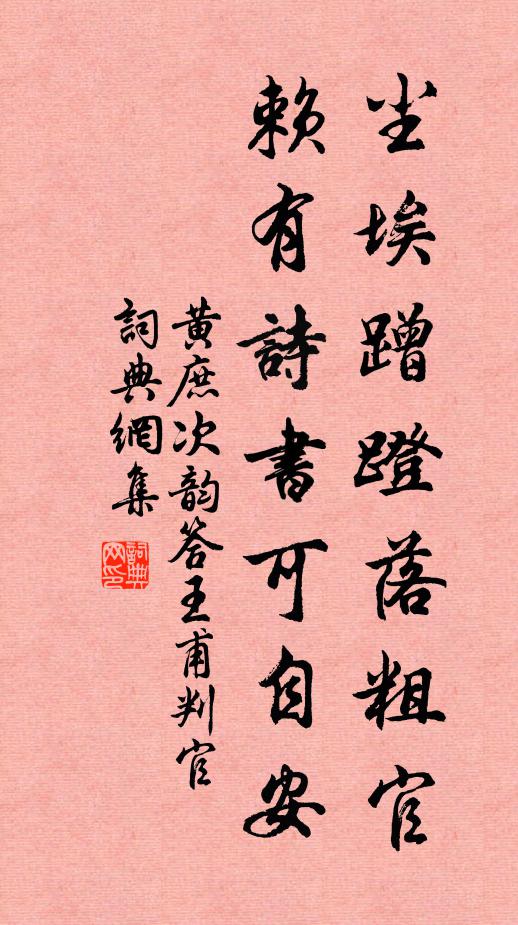 尘埃蹭蹬落粗官
賴有詩書可自安
黃庶次韵答王甫判官
詞典網集
詞典網印